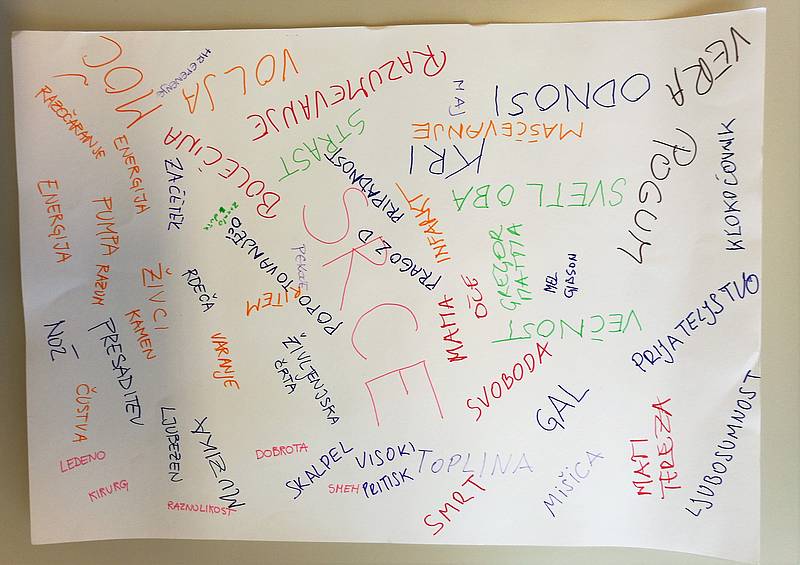 MOČ
HREPENENJE
VOLJA
RAZUMEVANJE
MAJ
ODNOSI
VERA
RAZOČARANJE
ENERGIJA
BOLEČINA
STRAST
MAŠČEVANJE
KRI
POGUM
KLOKOČOVNIK
ZAČETEK
PRIPADNOST
SVETLOBA
ENERGIJA
PUMPA
RAZUM
SRCE
INFARKT
PRAGOZD
GREGOR
MATTIA
MEL
GIBSON
ŽIVCI
RDEČA
RITEM
POPOTOVANJE
MATIA
OČE
VEČNOST
PRIJATELJSTVO
NOŽ
PRESADITEV
KAMEN
VARANJE
ŽIVLJENJSKA
ČRTA
SVOBODA
GAL
ČUSTVA
LJUBEZEN
MUZIKA
DOBROTA
SKALPEL
VISOKI
PRITISK
SMEH
TOPLINA
MIŠICA
MATI
TEREZA
LJUBOSUMNOST
LEDENO
KIRURG
RAZNOLIKOST
SMRT